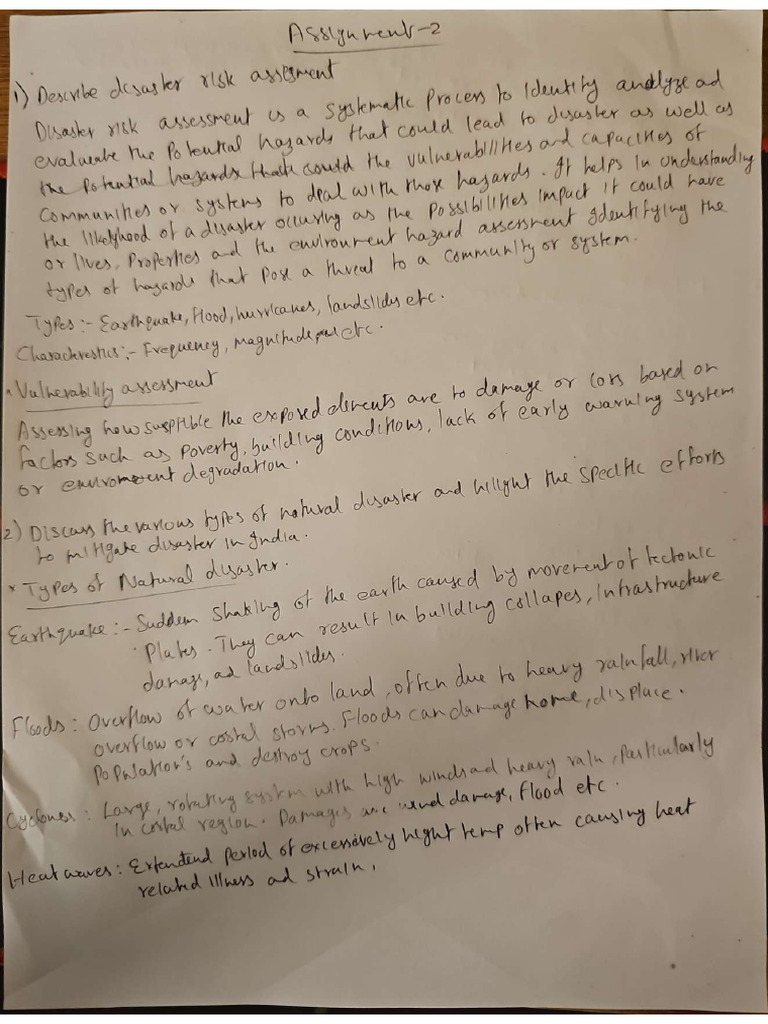 Assignment-2
1) Describe disaster risk assessment
Disaster risk assessment is a systematic process to identity analyze ad
evaluate the potential hazards that could lead to disaster as well as
the potential hazards that could the vulnerabilities and capacities of
communities or systems to deal with those hazards. It helps in understanding
the likelyhood of a disaster occuring as the possibilities impact it could have
or lives, properties and the environment hazard assessment identifying the
types of hazards that pose a threat to a community or system.
Types:- Earthquake, flood, hurricanes, landslides etc.
Characterestics:- Frequency, magnitude, etc.
Vulnerability assessment
Assessing how suseptible the exposed elements are to damage or loss based on
factors such as poverty, building conditions, lack of early warning system
or enviroment degradation.
2) Discuss the various types of natural disaster and hilight the specific efforts
to mitigate disaster in India.
Types of Natural disaster.
Earthquake:- Sudden shaking of the earth caused by movement of tectonic
Plates. They can result in building collapes, infrastructure
damage, ad landslides.
Floods: Overflow of water onto land, often due to heavy rainfall, river
overflow or costal storms. Floods can damage home, displace.
Population's and destroy crops.
Cyclones: Large, rotating system with high winds ad heavy rain, particularly
in costal region. Damages are wind damage, flood etc.
Heat waves: Extendend period of excessively hight temp often causing heat
related illness ad strain.